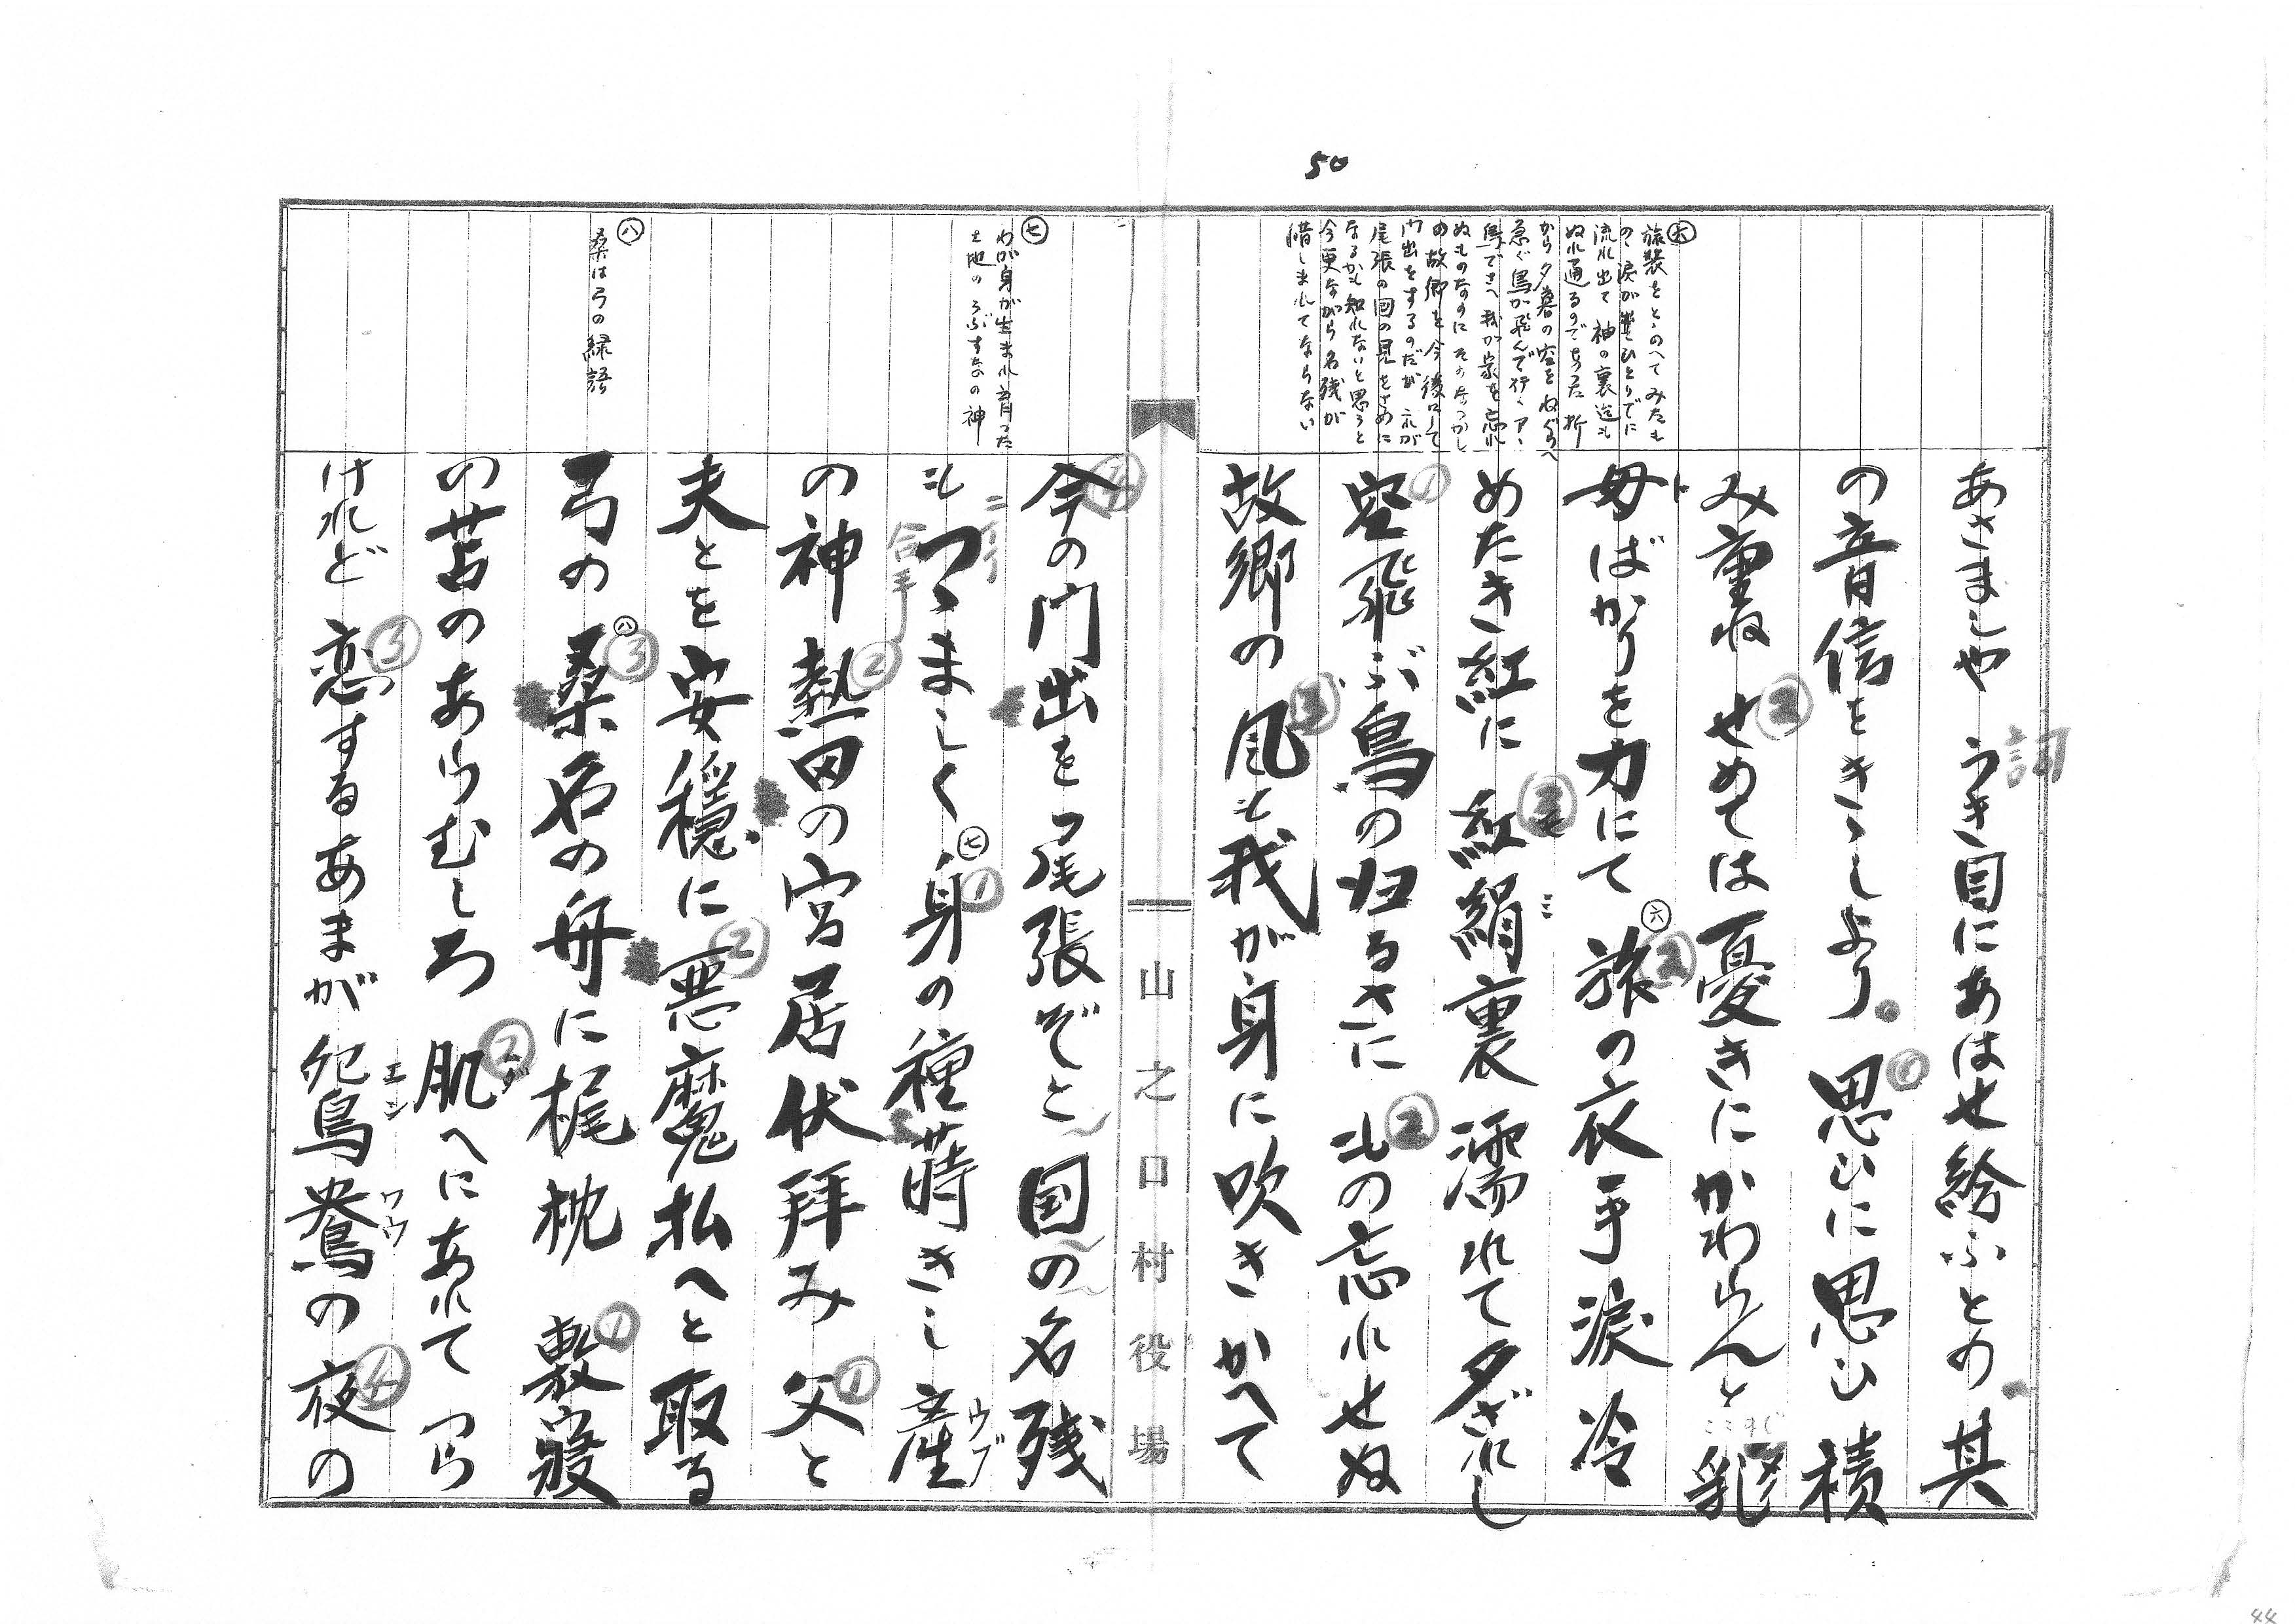 50
㊅
旅装をとゝのへてみたも
のゝ涙がひとりでに
流れ出て袖の裏迄も
ぬれ通るのであつた折
から夕暮の空をねぐらへ
急ぐ鳥が飛んで行くアヽ
鳥でさへ我が家を忘れ
ぬものなのにそのなつかし
の故郷を今後にして
門出をするのだが これが
尾張の国の見をさめに
なるかも知れないと思うと
今更ながら名残が
惜しまれてならない
あさましや うき目にあはせ給ふとの 其
詞
の音信をきゝしより 思ひに思ひ積
み重ね せめては憂きにかわらんと 乳
母ばかりを力にて 旅の衣手涙冷
めたき紅に 紅絹裏濡れて夕ざれし
空飛ぶ鳥の归るさに 之の忘れせぬ
故郷の風も我が身に吹きかへて
山之口村役場
㊆
わが身が生まれ育つた
土地のうぶすなの神
㊇
桑は弓の縁語
今の門出を尾張ぞと 国の名残
もつゝましく 身の種蒔きし産
ウブ
合手
の神 熱田の宮居伏拝み 父と
夫とを安穏に 悪魔払へと取る
弓の 桑名の舟に梶枕 敷寝
の苫のあらむしろ 肌へにあれてつら
けれど 恋するあまが鴛鴦の夜の
エン
ワウ
44